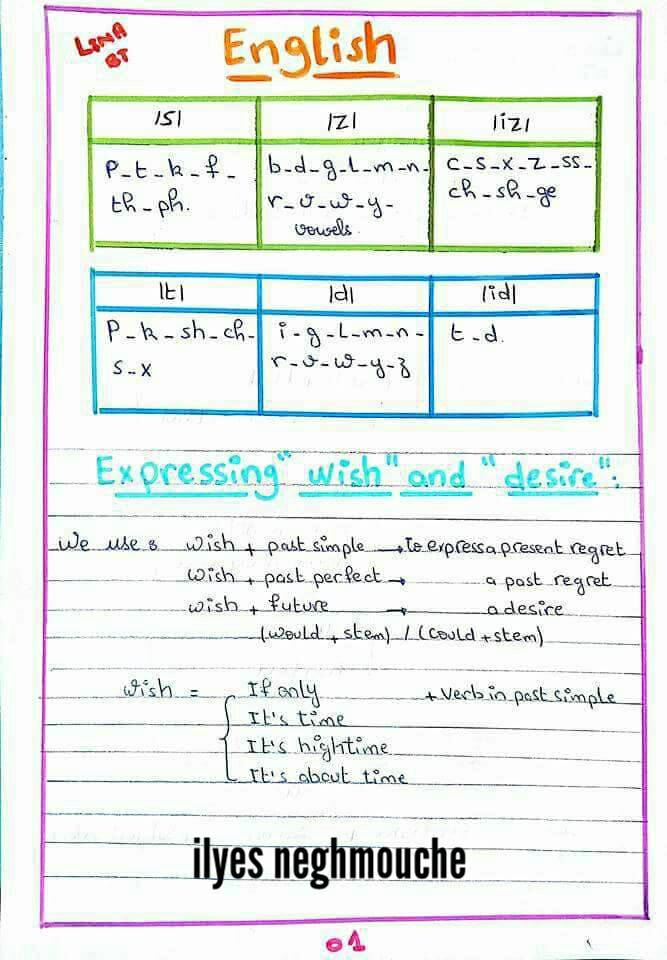 LINA
BT
English
|S| |Z| |iz|
P_t_k_f_ b_d_g_L_m_n_ c_s_x_z_ss_
th_ph. r_v_w_y_ ch_sh_ge
vowels
|t| |d| |id|
P_k_sh_ch_ i_g_L_m_n_ t_d.
s_x r_v_w_y_z
Expressing "wish" and "desire":
We use: wish + past simple → To express a present regret
wish + past perfect → a past regret
wish + future → a desire
(would + stem) / (could + stem)
wish = If only + verb in past simple
It's time
It's hightime
It's about time
ilyes neghmouche
01